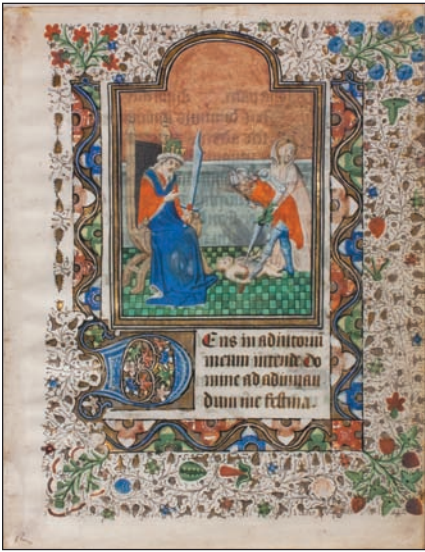 DEus in adiutoriū
meum intende Do
mine ad adiuuan
dum me festina.